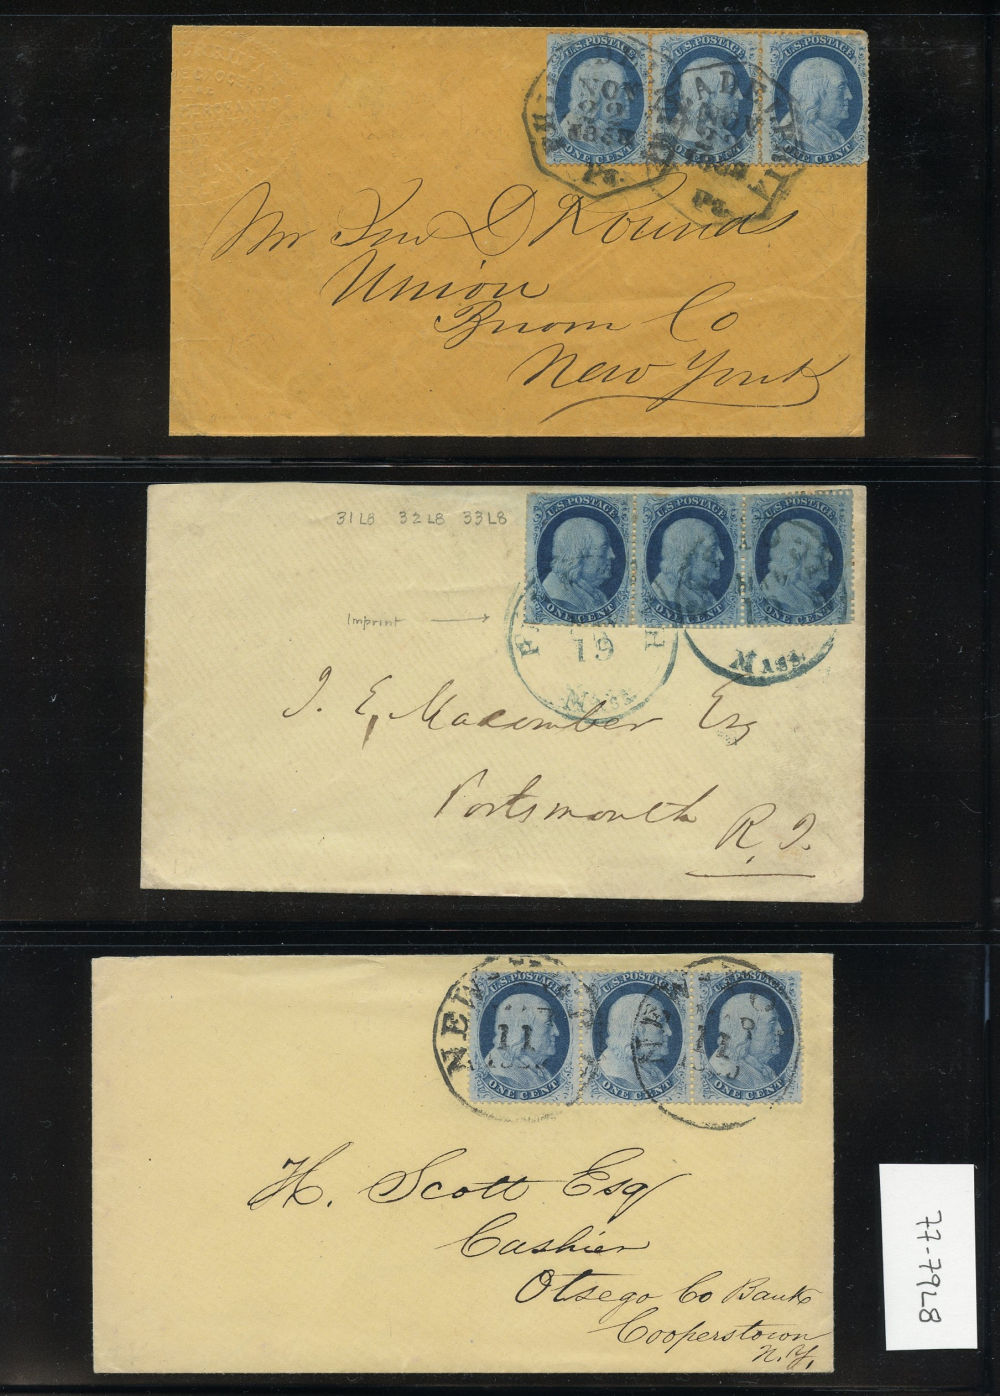 U.S. POSTAGE U.S. POSTAGE U.S. POSTAGE
ONE CENT ONE CENT ONE CENT
NOV NOV
22
Pa. Pa.
Mr Jno D Rounds
Union
Broom Co
New York
31L8 32L8 33L8
Imprint
U.S. POSTAGE U.S. POSTAGE U.S. POSTAGE
ONE CENT ONE CENT ONE CENT
19
MASS MASS
J. E. Macomber Esq
Portsmouth
R. I.
U.S. POSTAGE U.S. POSTAGE U.S. POSTAGE
ONE CENT ONE CENT ONE CENT
NEW
11
H. Scott Esq
Cashier
Otsego Co Bank
Cooperstown
N.Y.
77-79L8